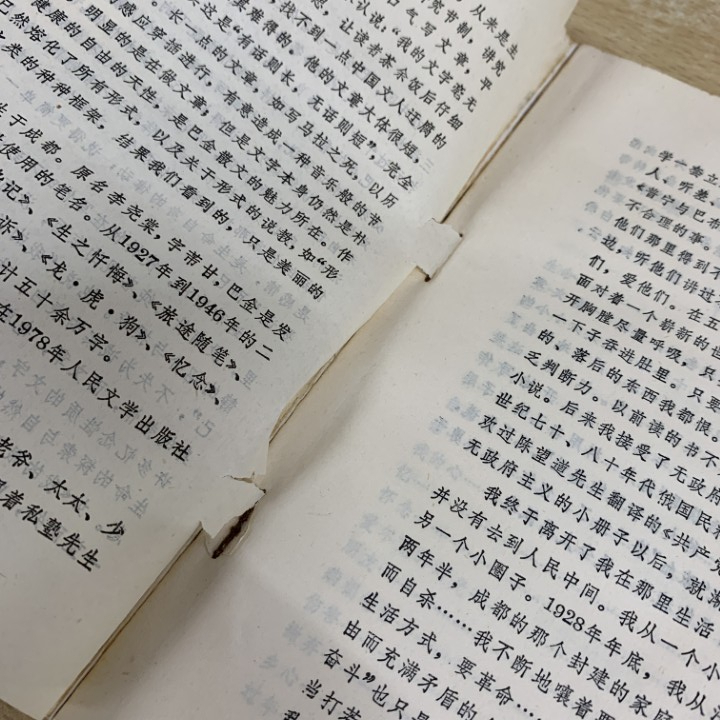 从朱是生
究节制，讲究
气写文章，平
认说：“我的文字毫无
让读者茶余饭后行细
找不到一点中国文人迂腐的
难得的。他的文章大体很短，
这是“有话则长，无话则短”，完全
长一点的文章，如写马拉之死，以历
感应穿话进行，有意造成一种音乐般的节
明显的是在做文章，但是文字本身仍然是朴
健康的自由的天性，是巴金散文的魅力所在。作
已然熔化了所有形式，以及关于形式的说教，如“形
之类的种种框架，结果我们看到的，只是美丽的
于成都。原名李尧棠，字芾甘，巴金是发
使用的笔名。从1927年到1946年的二
记》、《生之忏悔》、《旅途随笔》、
诉》、《龙·虎·狗》、《忆念》、
计五十余万字。
在1978年人民文学出版社
老爷、太太、少
跟着私塾先生
人》听差、
不合理的事
他们那里得到不
边，听他们讲过
们，爱他们。在五
面对着一个崭新的世
开胸膛尽量呼吸，只
一下子吞进肚里。只要
的、落后的东西我都恨。
乏判断力。以前读的书不
小说。后来我接受了无政府
世纪七十、八十年代俄国民
欢过陈望道先生翻译的《共产党
无政府主义的小册子以后，就渐
我终于离开了我在那里生活
并没有去到人民中间。我从一个小
另一个小圈子。1928年年底，我从
两年斗，成都的那个封建的家庭
而自杀……我不断地嚷着
生活方式，要革命……
由而充满矛盾的
奋斗”也只是
当打若
我